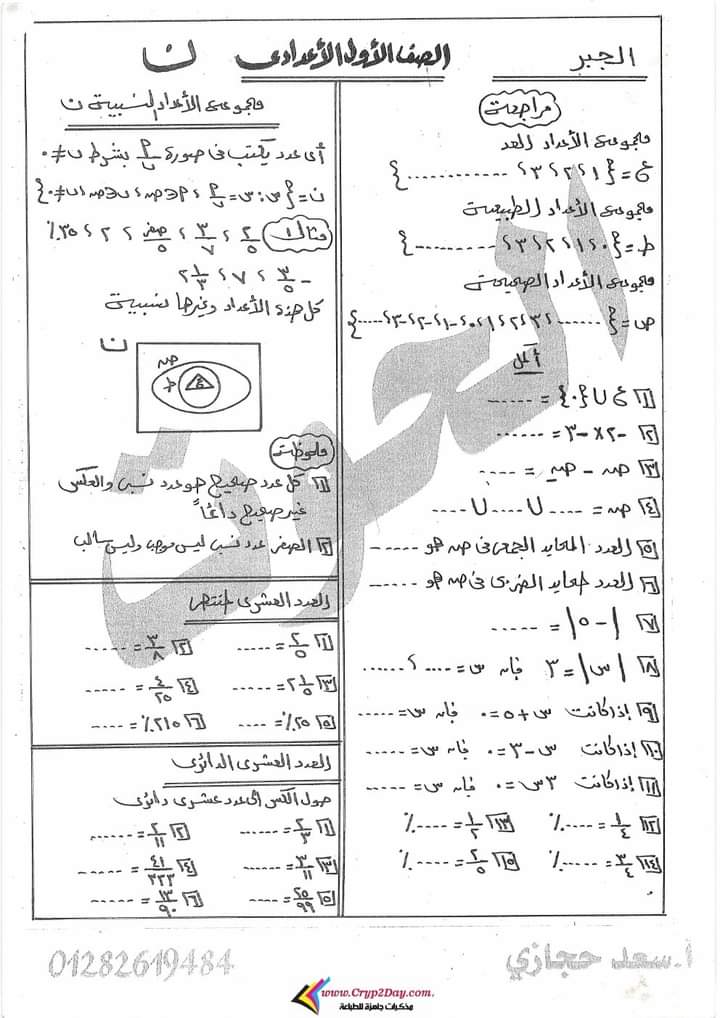 الجبر
الصف الأول الأعدادى
ن
مراجعة
مجموعة الأعداد العد
ع = { ١ ، ٢ ، ٣ ، ............ }
مجموعة الأعداد الطبيعية
ط = { ٠ ، ١ ، ٢ ، ٣ ، .......... }
مجموعة الأعداد الصحيحة
ص = { ...... ، ٣ ، ٢ ، ١ ، ٠ ، -١ ، -٢ ، -٣ ، ..... }
أكمل
١ ع ∪ {٠} = ......
٢ -٢ × -٣ = ......
٣ ص - ص = ....
٤ ص = .... ∪ .... ∪ ....
٥ العدد المحايد الجمعى فى ص هو .....
٦ العدد محايد الضربى فى ص هو .....
٧ |-٥| = .....
٨ |س| = ٣ فإن س = .... ، .....
٩ إذا كانت س + ٥ = ٠ فإن س = .....
١٠ إذا كانت س - ٣ = ٠ فإن س = .....
١١ إذا كانت ٣س = ٠ فإن س = .....
١٢ ١/٤ = ..... ٪ ١٣ ١/٢ = ..... ٪
١٤ ٣/٤ = ..... ٪ ١٥ ٢/٥ = ..... ٪
مجموعة الأعداد النسبية ن
أى عدد يكتب فى صورة م/ن بشرط ن ≠ ٠
ن = { س : س = م/ن ، م ∈ ص ، ن ∈ ص ، ن ≠ ٠ }
مثال ١ ٢/٥ ، ٣/٧ ، صفر/٥ ، ٢ ، ٣٥٪
-٣/٥ ، ٧ ، ٢ ١/٣
كل هذه الأعداد وغيرها نسبية
ن
ص
ط
ع
ملحوظات
١ كل عدد صحيح هو عدد نسبى والعكس
غير صحيح دائماً
٢ الصفر عدد نسبى ليس موجب وليس سالب
العدد العشرى المنتهى
١ ٢/٥ = ..... ٢ ٣/٨ = .....
٣ ٢ ١/٥ = ..... ٤ ٤/٢٥ = .....
٥ ٢٥٪ = .... ٦ ٢١٥٪ = ....
العدد العشرى الدائرى
حول الكسر إلى عدد عشرى دائرى
١ ٢/٣ = ..... ٢ ٢/١١ = .....
٣ ٣/١١ = ..... ٤ ٤١/٣٣٣ = .....
٥ ٢٥/٩٩ = ..... ٦ ١٣/٩٠ = .....
أ.سعد حجازي
01282619484
www.Cryp2Day.com
مذكرات جاهزة للطباعة